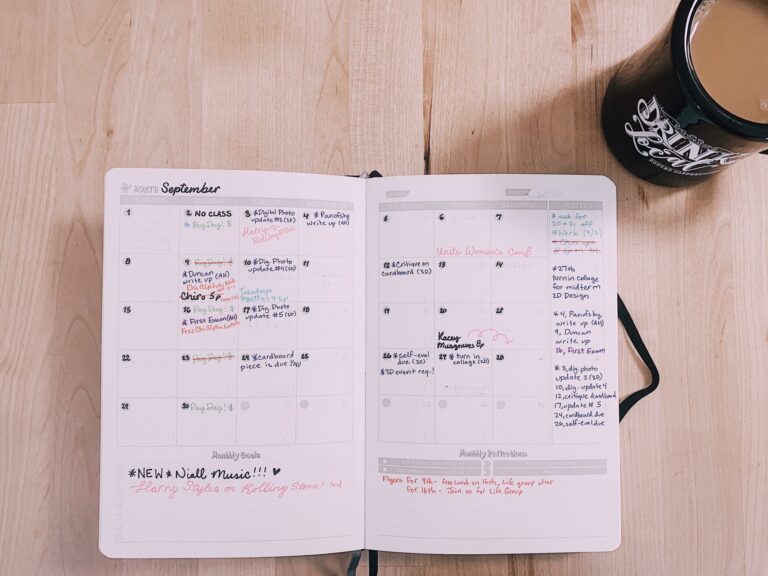 MONTH September
SUNDAY MONDAY TUESDAY WEDNESDAY
1
2 NO CLASS
*Pay Day! $
3 *Digital Photo
update #3 (3D)
4 *Panofsky
write up (AH)
8
9 Pay Day! $
*Duncan
write up (AH)
Chi Alpha
Chiro 5p
10 *Dig. Photo
update #4 (3D)
Tuesdays
together
11
15
16 Pay Day! $
*First Exam (AH)
Free Chi Alpha Lunch
17 *Dig. Photo
update #5 (3D)
18
22
23 Pay Day! $
24 *cardboard
piece is due (3D)
25
29
30 Pay Day! $
Monthly Goals
*NEW * Niall Music!!! ♥
Harry Styles on Rolling Stone! 3rd
FRIDAY SATURDAY NOTES
5
6
7
Unite Women's Conf.
12 *Critique on
cardboard (3D)
13
14
19
20
21
Kacey
Musgraves 8p
26 *self-eval
due (3D)
*3D event req.!
27 *turn in
collage (2D)
28
*ask for
20 & 21 off
@work (9/2)
*27th
turn in collage
for midterm
2D Design
*4, Panofsky
write up (AH)
9, Duncan
write up
16, First Exam
*3, dig. photo
update 3 (3D)
10, dig. update 4
12, critique cardboard
17, update #5
24, cardboard due
26, self-eval due
Monthly Reflections
Flyers for 9th - Free lunch on 16th, Life group after
for 16th - Join us for Life Group
DRINK
Local